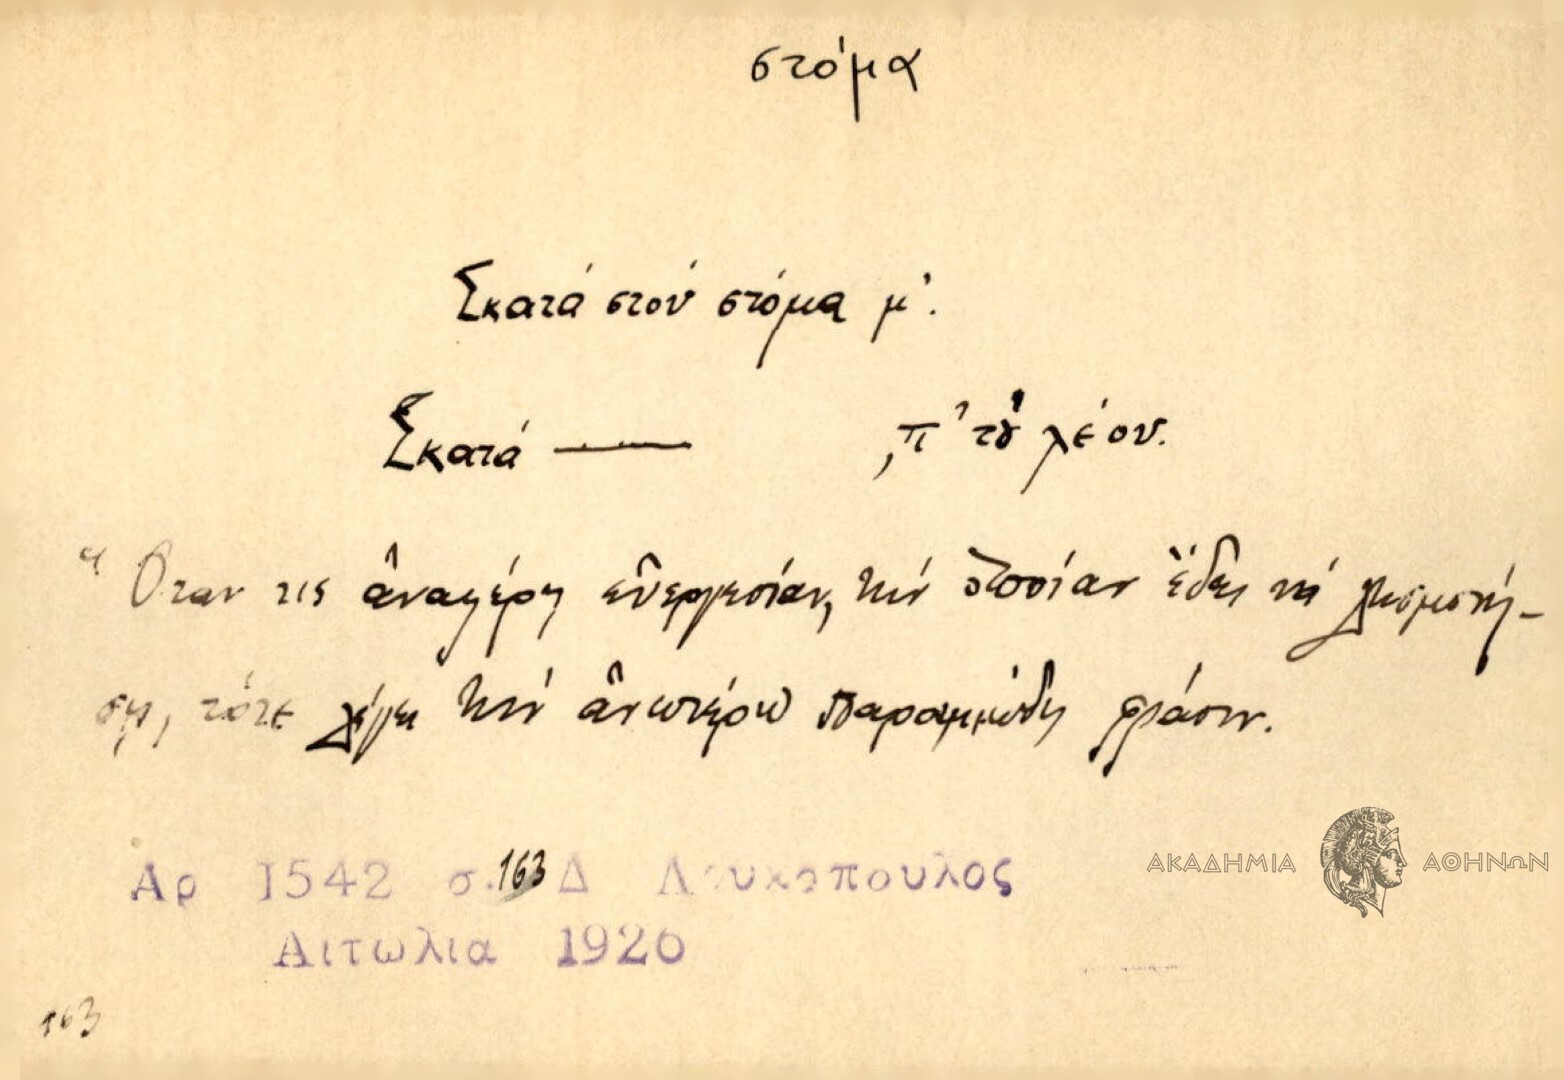 στόμα
Σκατά στού στόμα μ'.
Σκατά — , π' τού λέου.
Ὅταν τις ἀναφέρῃ εὐεργεσίαν, τὴν ὁποίαν ἔδει νὰ λησμονή-
σῃ, τότε λέγει τὴν ἀνωτέρω παροιμιώδη φράσιν.
Αρ 1542 σ. 163 Δ Λουκοπουλος
Αιτωλια 1920
163
ΑΚΑΔΗΜΙΑ ΑΘΗΝΩΝ